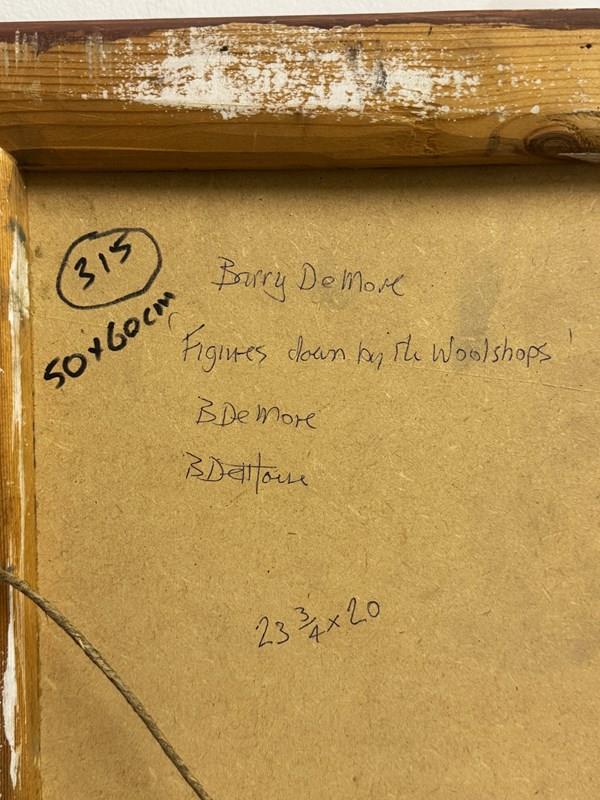 315
50x60cm
Barry De More
'Figures down by the Woolshops'
BDeMore
BDeMore
23 3/4 x 20